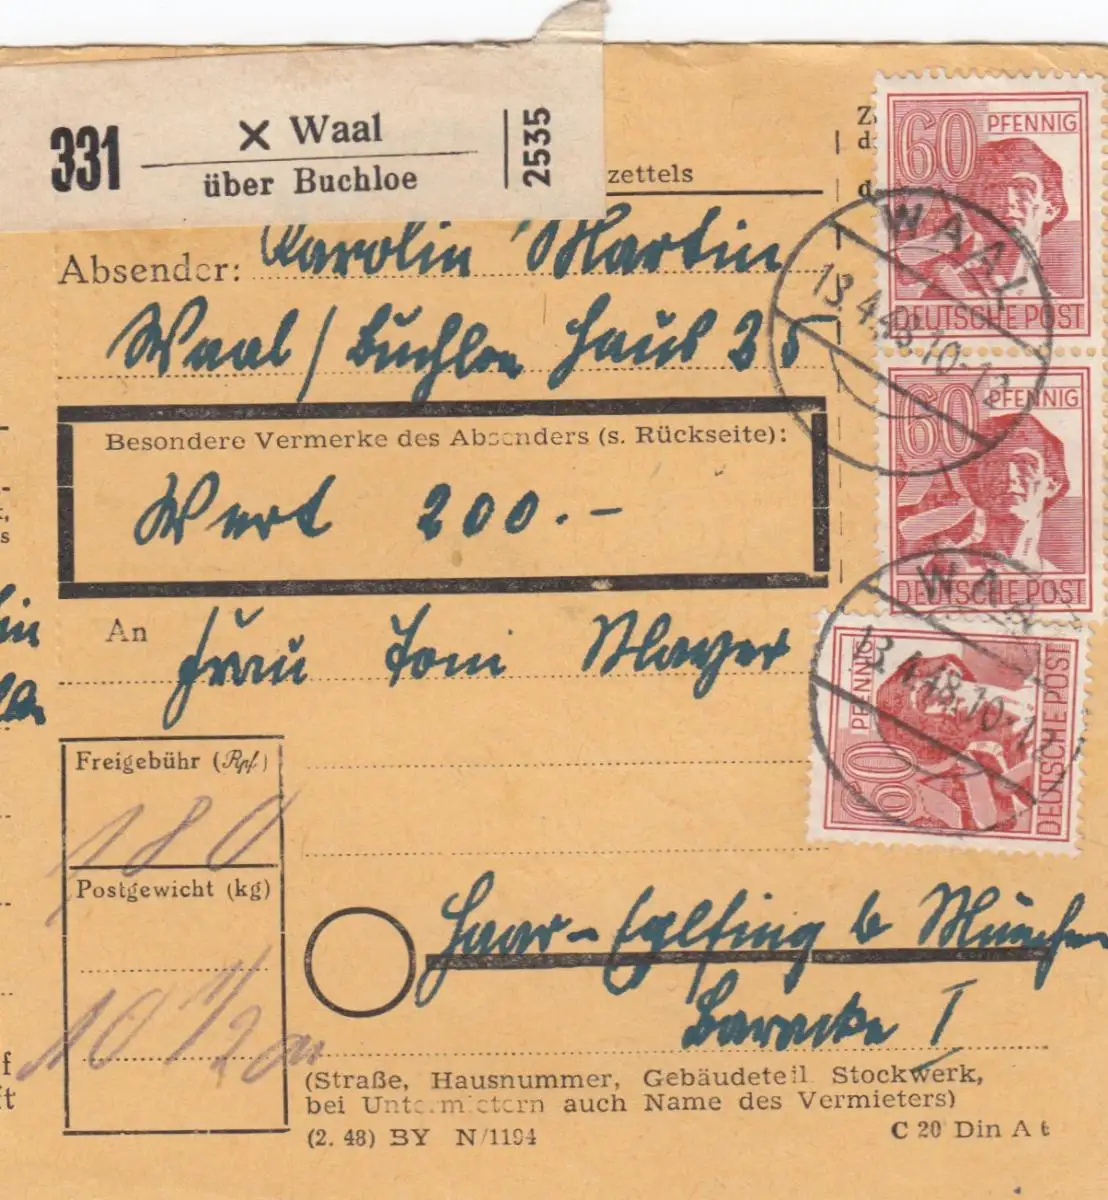 331 X Waal
über Buchloe
2535
zettels
Absender: Karolin Martin
Waal / Buchloe Haus 35
Besondere Vermerke des Absenders (s. Rückseite):
Wert 200.-
An Frau Toni Mayer
Freigebühr (Rpf.)
180
Postgewicht (kg)
10 1/2
Haar-Eglfing b München
Baracke I
(Straße, Hausnummer, Gebäudeteil Stockwerk,
bei Untermietern auch Name des Vermieters)
(2. 48) BY N/1194
C 20 Din A 6
60 PFENNIG
DEUTSCHE POST
WAAL
13.4.48.10-12
60 PFENNIG
DEUTSCHE POST
WAAL
13.4.48.10-12
60 PFENNIG
DEUTSCHE POST